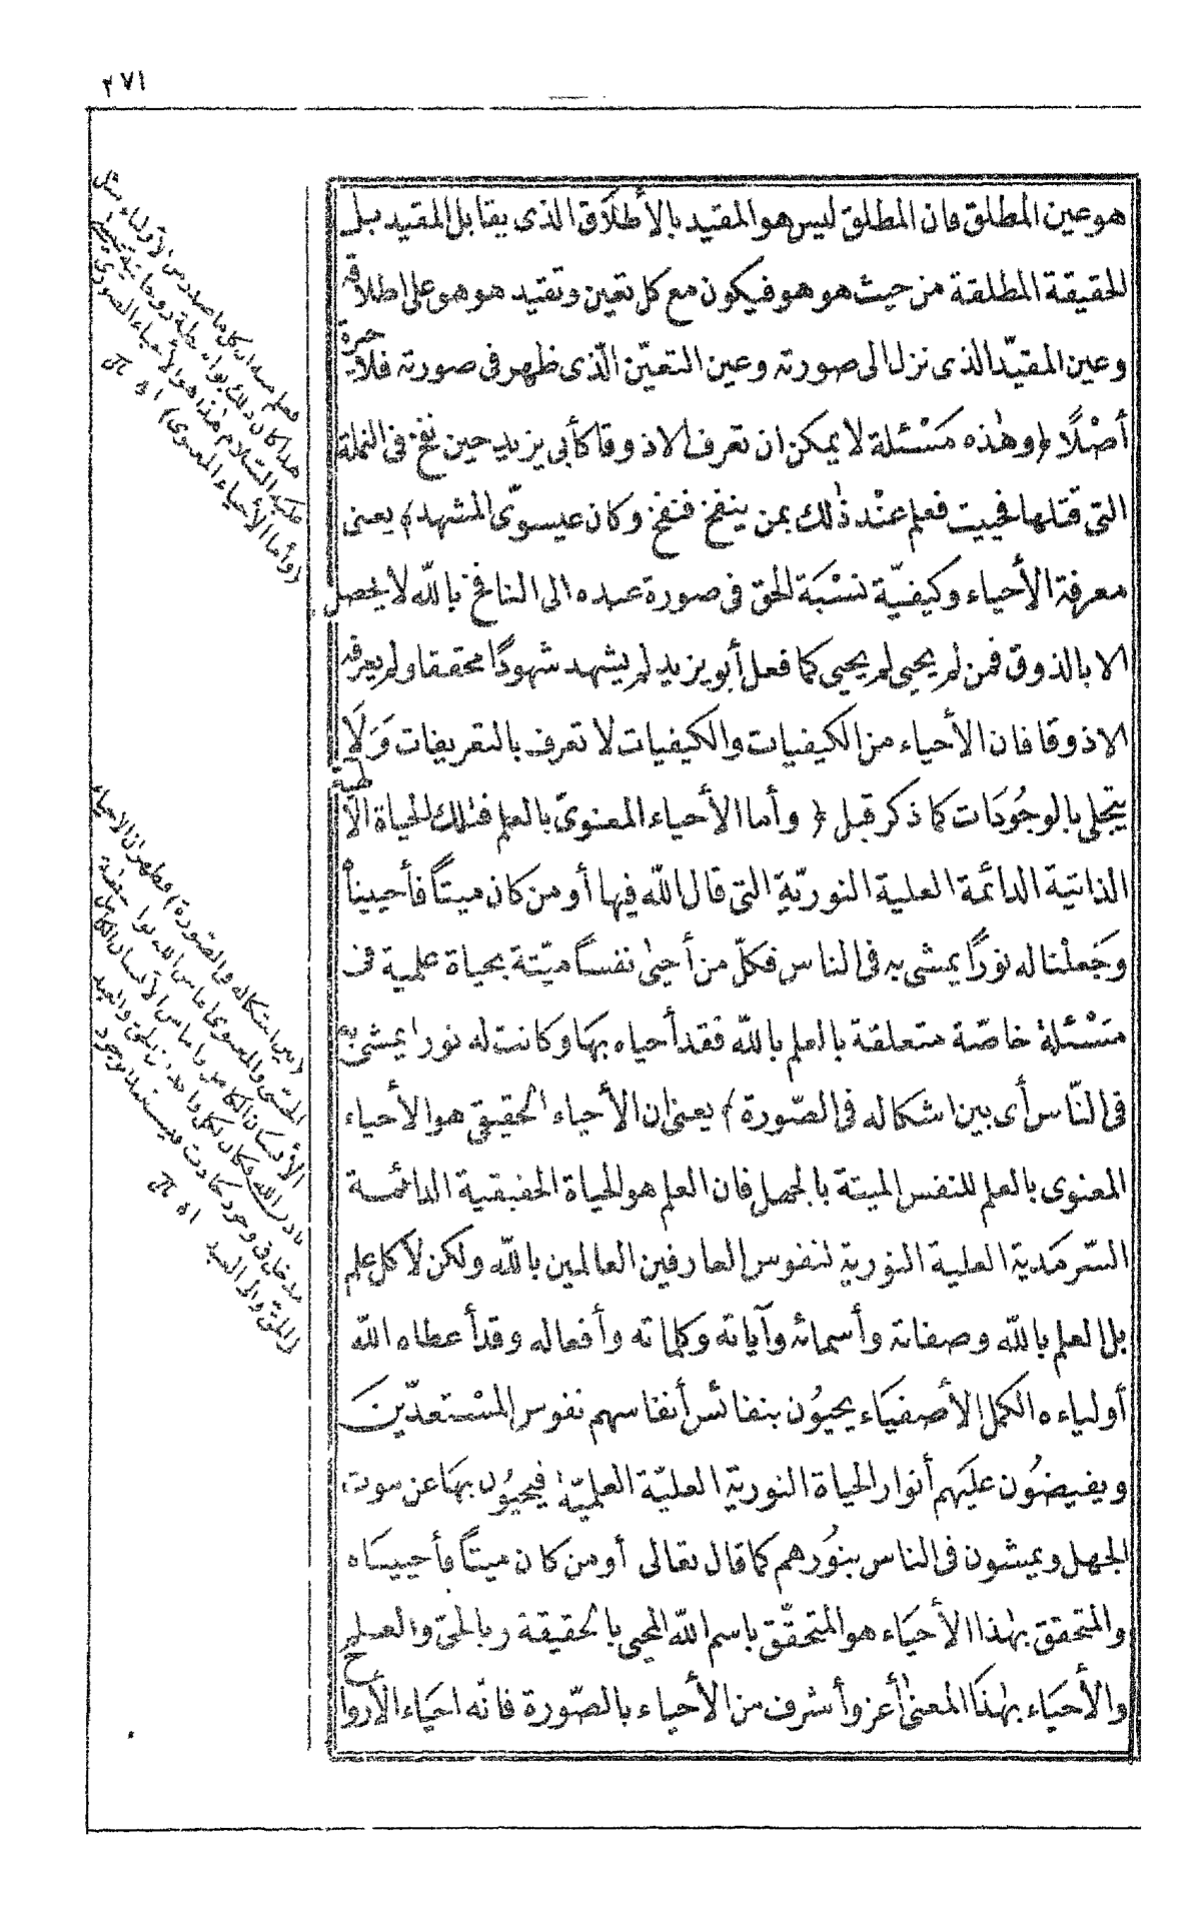 ٢٧١
هو عين المطلق فان المطلق ليس هو المقيد بالأطلاق الذى يقابل المقيد بل
الحقيقة المطلقة من حيث هو هو فيكون مع كل تعين وتقيد هو هو على اطلاقه
وعين المقيّد الذى نزل الى صورته وعين التعيّن الّذى ظهر فى صورته فلا حيرة
أصْلًا (وهٰذه مَسْئلة لا يمكن ان تعرف الاذوقا كأبى يزيد حين نفخ فى النملة
التى قتلها فحييت فعلم عنْد ذٰلك بمن ينفخ فنفخ وكان عيسوىّ المشهد) يعنى
معرفة الأحياء وكيفيّة نسْبَة الحق فى صورة عبده الى النافخ بالله لا يحصل
الا بالذوق فمن لم يحيى لم يحيى كما فعل أبو يزيد لم يشهد شهودًا محققا ولم يعرفه
الاذوقا فان الأحياء من الكيفيات والكيفيات لا تعرف بالتعريفات وَلَا
يتجلى بالوجُودَات كما ذكر قبل ( وأما الأحياء المعنوىّ بالعلم فتلك الحياة الآلٰهية
الذاتية الدائمة العلية النوريّة التى قال الله فيها أو من كان ميتًا فأحييناه
وَجَعلْنا له نورًا يمشى به فى الناس فكلّ من أحيىٰ نفسًا ميّتة بحياة علمية فى
مَسْئلة خاصّة متعلقة بالعلم بالله فقد أحياه بهَا وكانت له نورا يمشى به
فى النّاس أى بين اشكاله فى الصّورة) يعنى ان الأحياء الحقيقى هو الأحياء
المعنوى بالعلم للنفس الميتة بالجهل فان العلم هو الحياة الحقيقية الدائمة
السّرمَدية العلية النورية لنفوس العارفين العالمين بالله ولكن لا كل علم
بل العلم بالله وصفاته وأسمائه وآياته وكلماته وأفعاله وقد أعطاه الله
أولياءه الكمل الأصفيَاء يحيوُن بنفائس أنفاسهم نفوس المسْتعدّينَ
ويفيضُون عليَهم أنوار الحياة النورية العليّة العلميّة فيحيوُن بهَا عن موت
الجهل ويمشون فى الناس بنوُرهم كما قال تعالى أو من كان ميتًا فأحييناه
والمتحقق بهٰذا الأحيَاء هو المتحقّق باسم الله المحيى بالحقيقة وبالحىّ والعلم
والأحيَاء بهٰذَا المعنىٰ أعز وأشرف من الأحياء بالصّورة فانّه احيَاء الأرواح
فعلم منه ان كل ما صدر من الأولياء مثل
هذا كان ذلك بواسطة روحانية عيسى
عليه السّلام هٰذا هو الأحياء الصورى
(وأما الأحياء المعنوى) اه
(بين اشكاله فى الصّورة) فظهر ان الاحياء
الحسّى والمعنوى
الى العبد اه